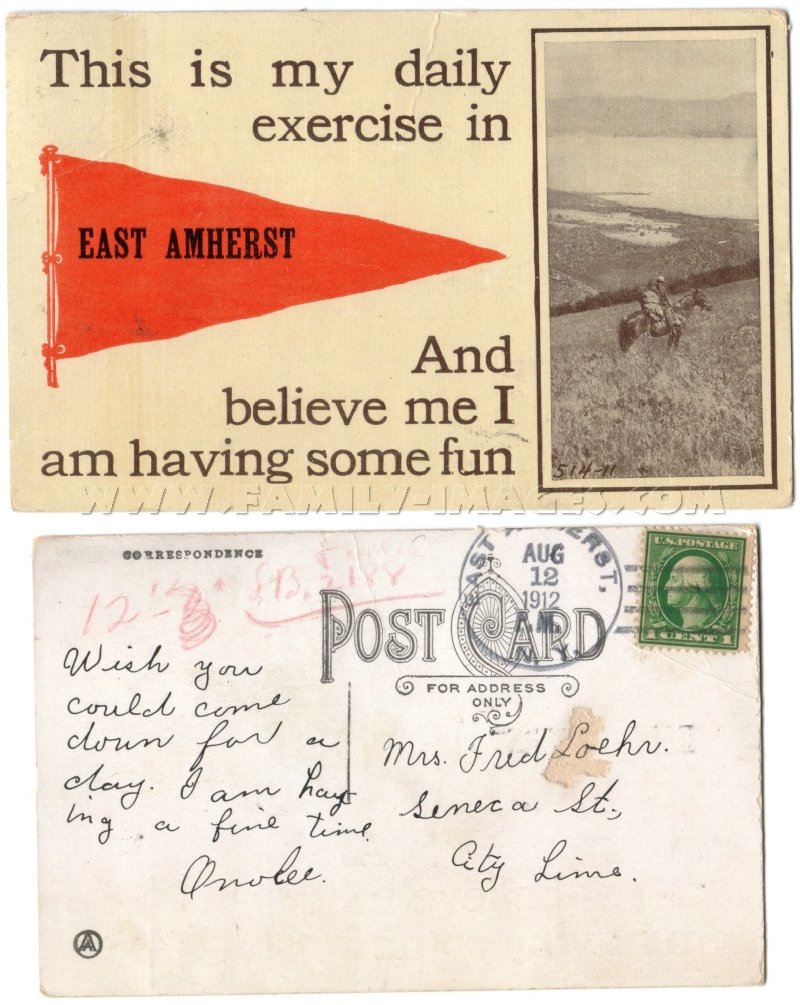 This is my daily
exercise in
EAST AMHERST
And
believe me I
am having some fun
514-11
WWW.FAMILY-IMAGES.COM
CORRESPONDENCE
EAST AMHERST,
AUG
12
1912
M.
N. Y.
U.S. POSTAGE
1 CENT 1
12
POST CARD
FOR ADDRESS
ONLY
Wish you
could come
down for a
day. I am hav-
ing a fine time.
Mrs. Fred Loehr.
Seneca St.,
City Line.
A